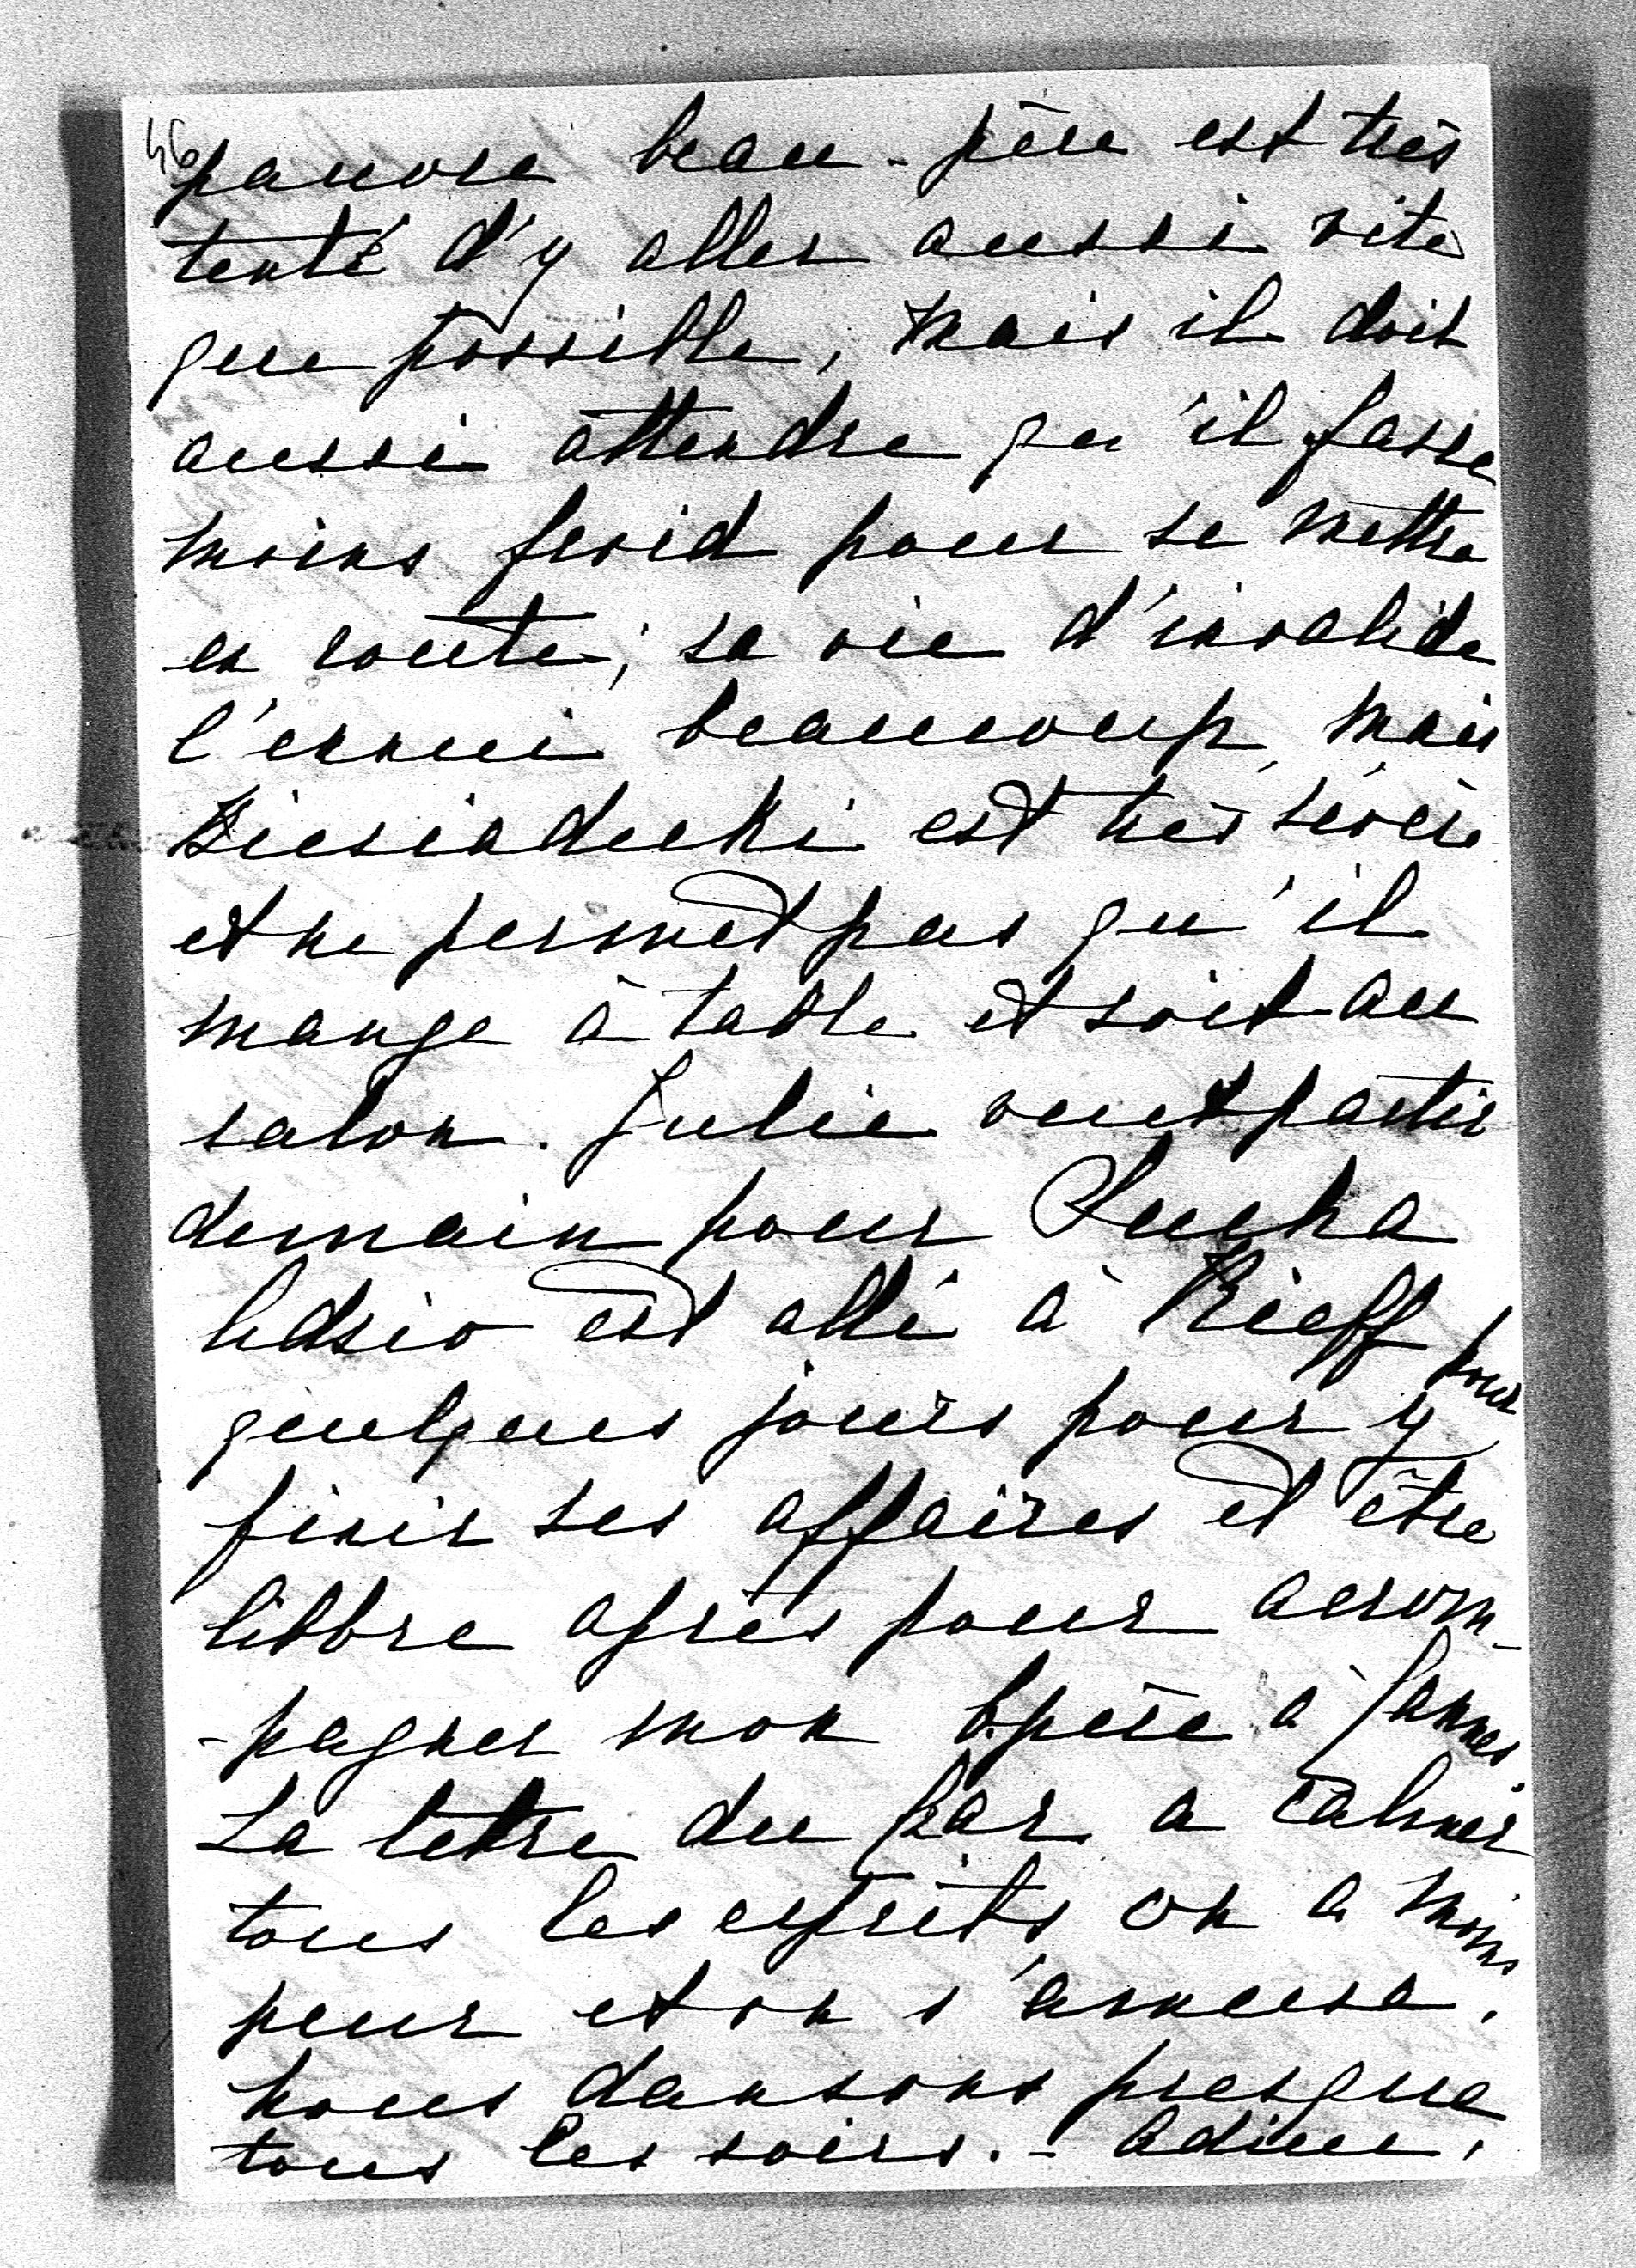 46
pauvre beau-père est très
tenté d'y aller aussi vite
que possible, mais il doit
aussi attendre qu'il fasse
moins froid pour se mettre
en route; sa vie d'invalide
l'ennui beaucoup, mais
Biesiadecki est très sévère
et ne permet pas qu'il
mange à table et soit au
salon. Julie veut partir
demain pour Sucha
Adsio est allé à Kieff pour
quelques jours pour y
finir ses affaires et être
libbre après pour accom-
-pagner mon b.père à
La lettre du a calmer
tous les esprits, on a moins
peur et on s'amuse,
nous dansons presque
tous les soirs. - Adieu,